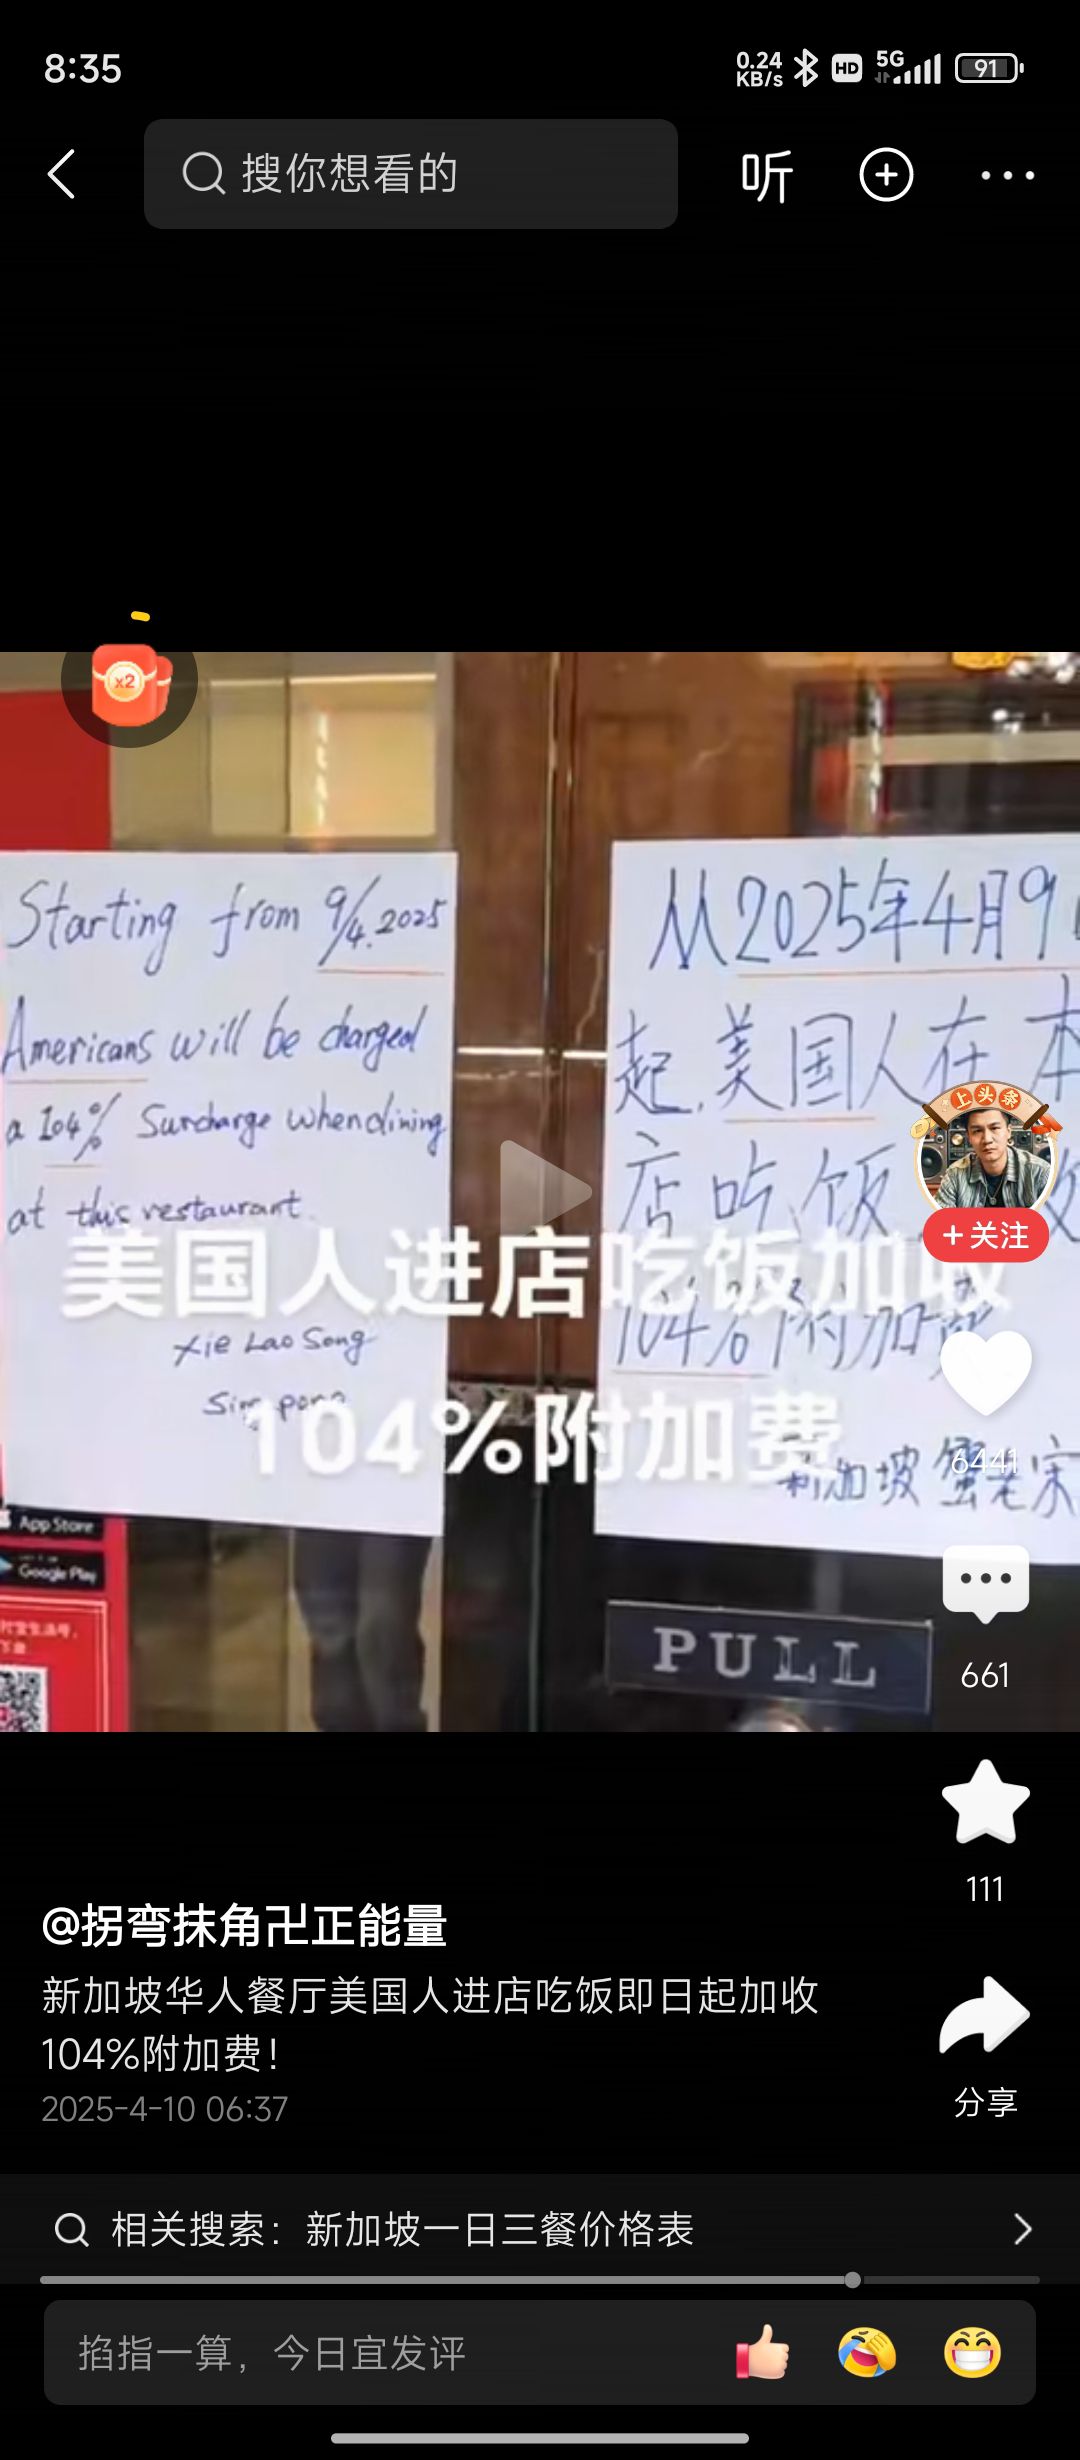 8:35
0.24
KB/s
HD
5G
91
搜你想看的
听
x2
Starting from 9/4.2025
Americans will be charged
a 104% Surcharge when dining
at this restaurant.
Xie Lao Song
从2025年4月9
起,美国人在本
店吃饭
104%附加费
新加坡 蟹老宋
美国人进店吃饭加收
104%附加费
上头条
+关注
6441
App Store
Google Play
PULL
661
111
@拐弯抹角卍正能量
新加坡华人餐厅美国人进店吃饭即日起加收
104%附加费!
2025-4-10 06:37
分享
相关搜索:新加坡一日三餐价格表
掐指一算,今日宜发评